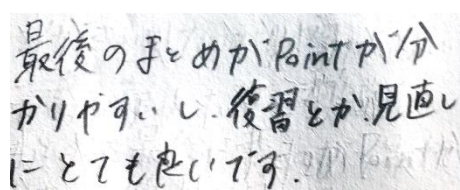 最後のまとめがPointが分
かりやすいし、復習とか見直し
にとても良いです.